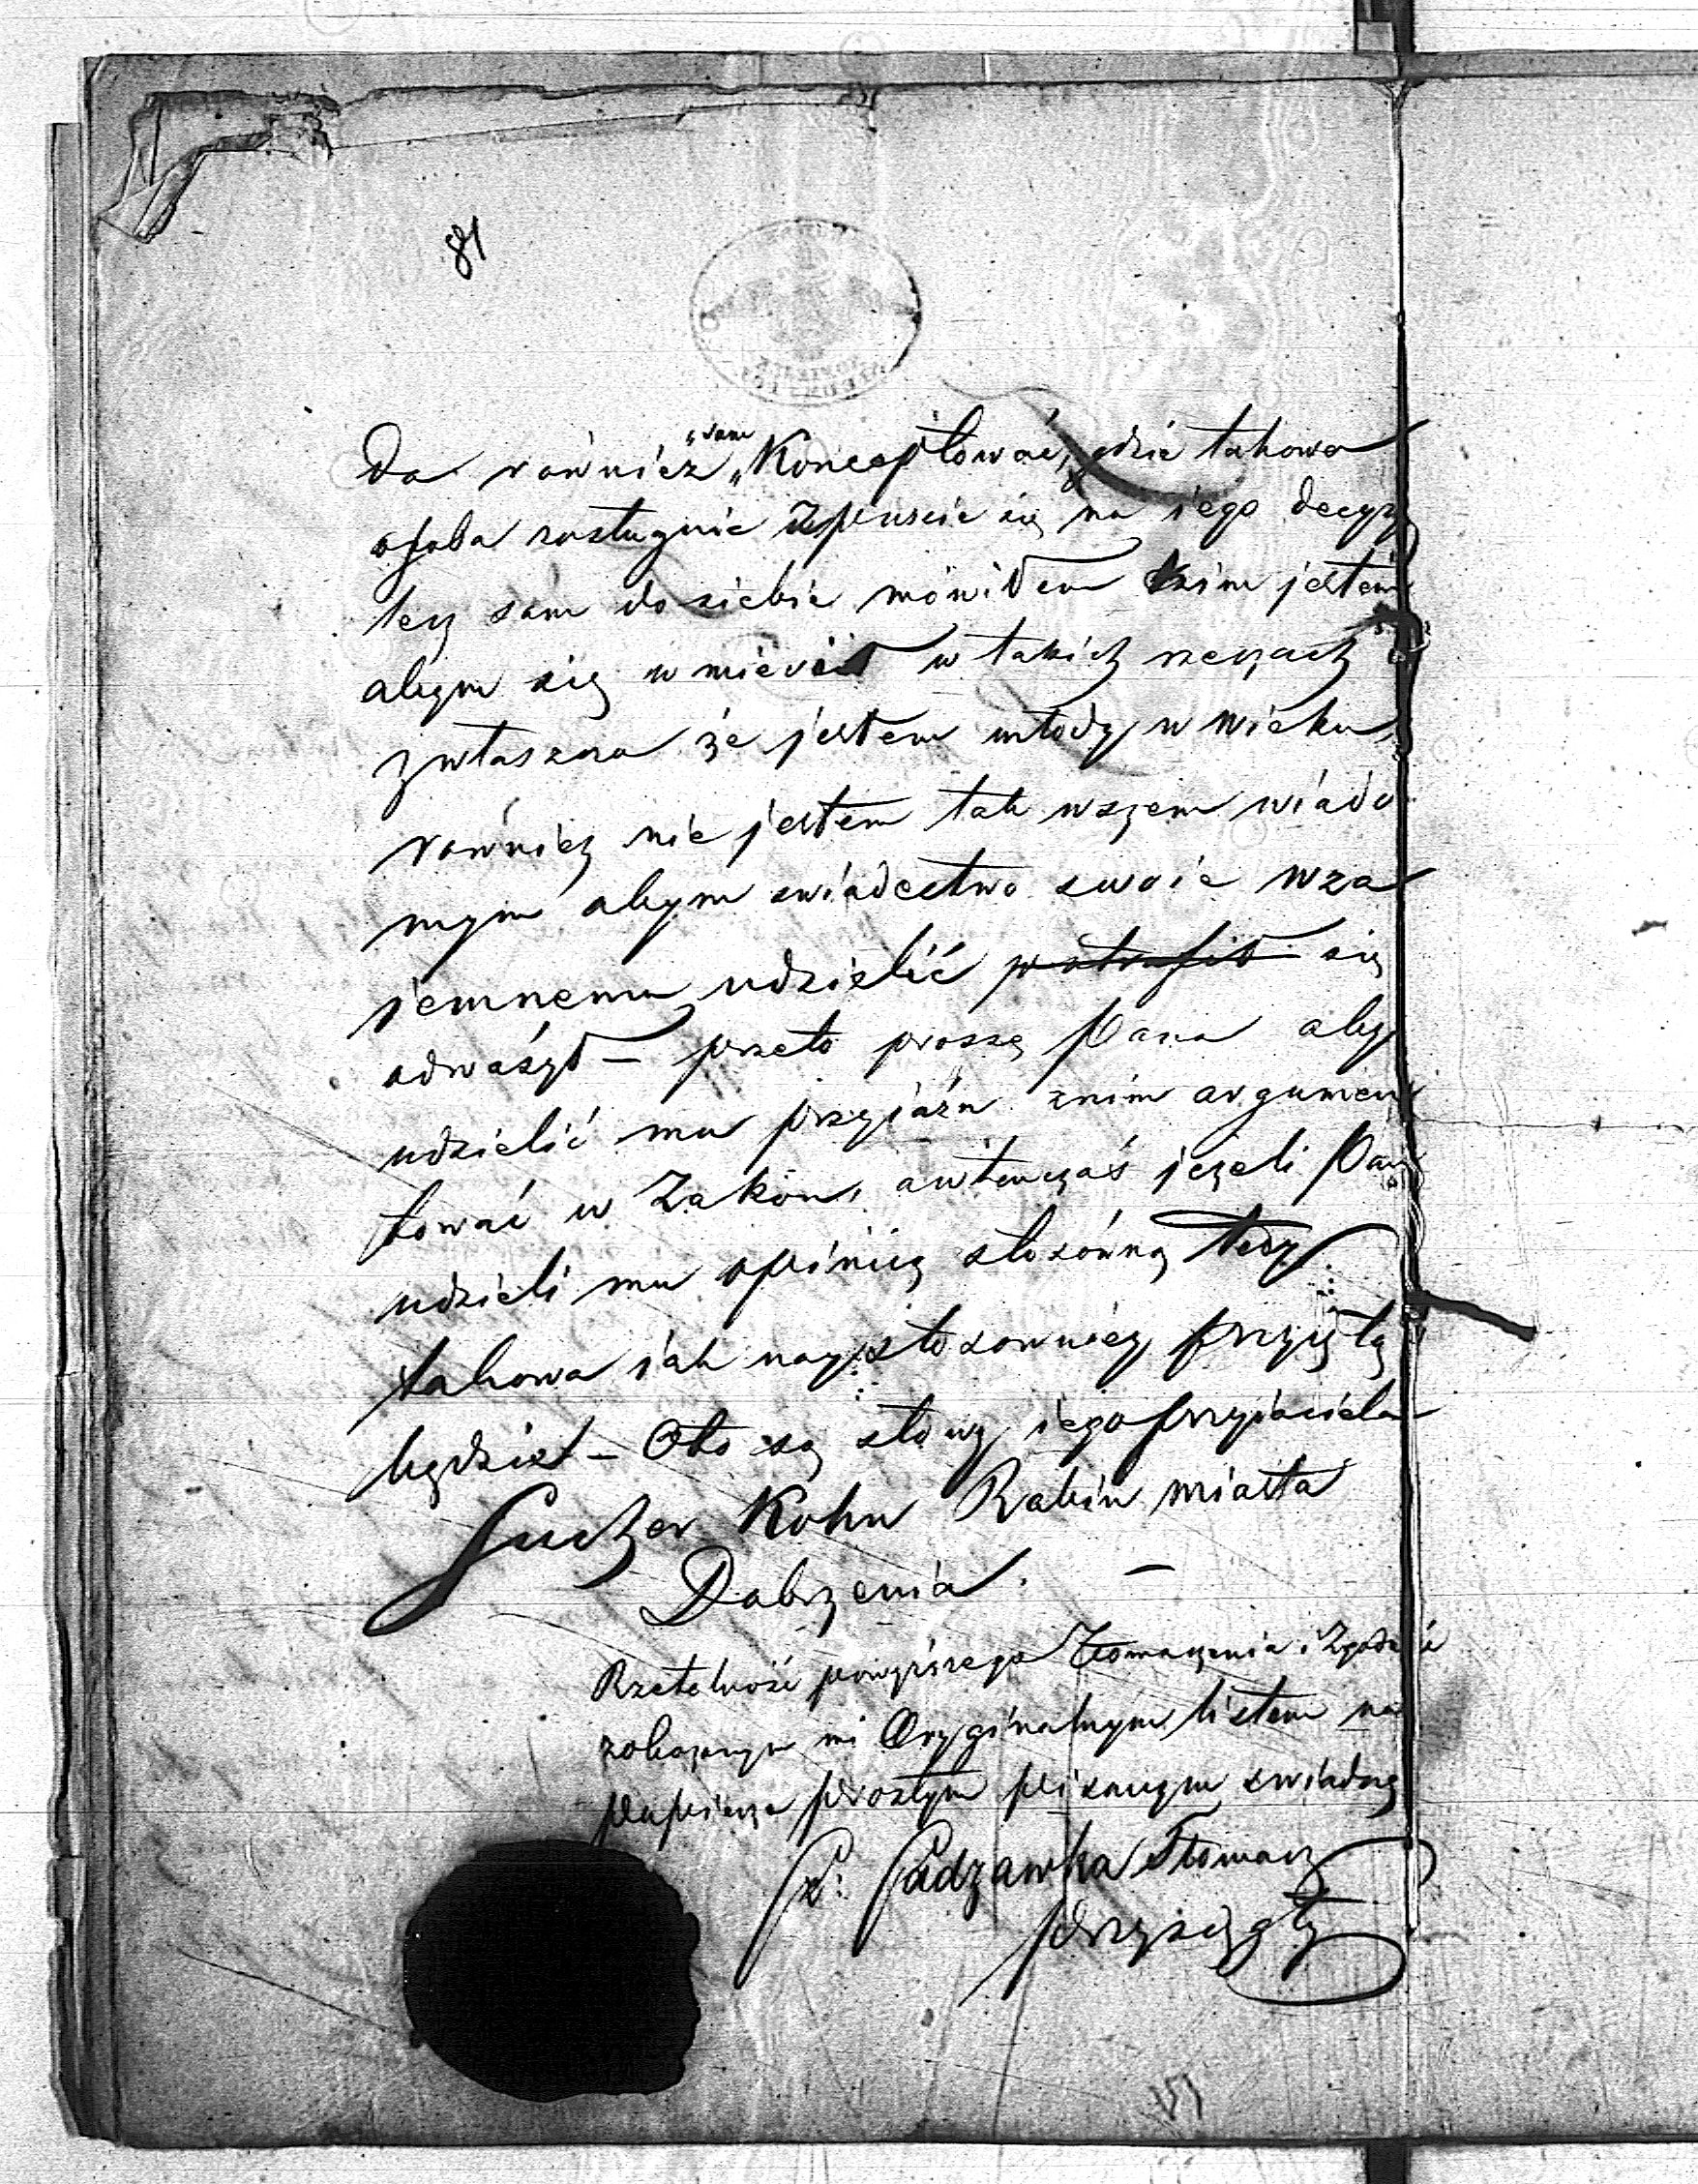 81
da również „sam „Konceptować, gdzie takowa
osoba zasługuie zpuscić się na iego decyzy
lecz sam do siebie mówiłem kzim jestem
abym się w miewał w takich rzeczach
zwłaszcza że jestem młody w wieku
również nie jestem tak wszem wiado
mym abym swiadectwo swoie wza
jemnemu udzielić potrafił się
odważył – przeto proszę Pana aby
udzielić mu przyiaźń znim argumen
tować w Zakon, awtenczas jeżeli Pan
udzieli mu opinią stosówną tedy
takowa iak nay stosowniey przyiętą
będzie – Oto są słowy iego przyiaciela
Sucher Kohn Rabin miasta
Dobrzenia. –
Rzetelność powyższego Tłomaczenia i Zgodność
zokazanym mi Oryginalnym listem na
papierze prostym pisanym swiadczę
Padzawka Tłomacz
przysięgły